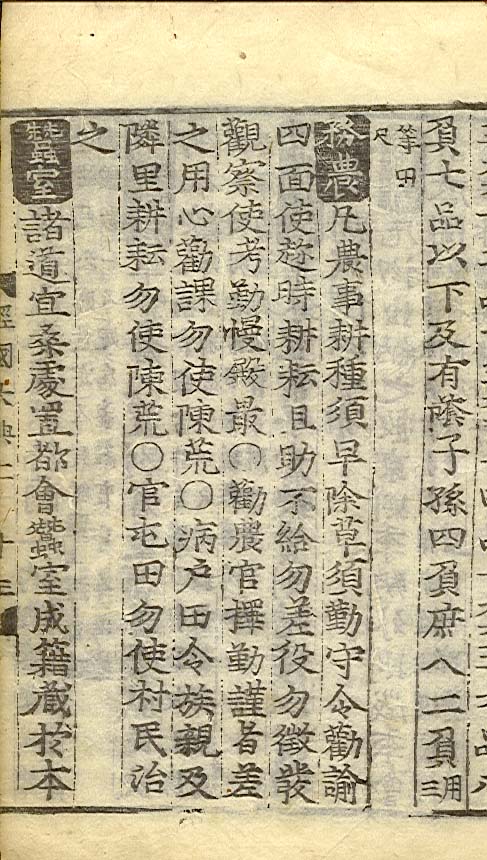 負七品以下及有蔭子孫四負庶人二負用三
等田
尺
務農凡農事耕種須早除草須勤守令勸諭
四面使趂時耕耘且助不給勿差役勿徵發
觀察使考勤慢殿最○勸農官擇勤謹者差
之用心勸課勿使陳荒○病戶田令族親及
隣里耕耘勿使陳荒○官屯田勿使村民治
之
蠶室諸道宜桑處置都會蠶室成籍藏於本
經國大典二 十三